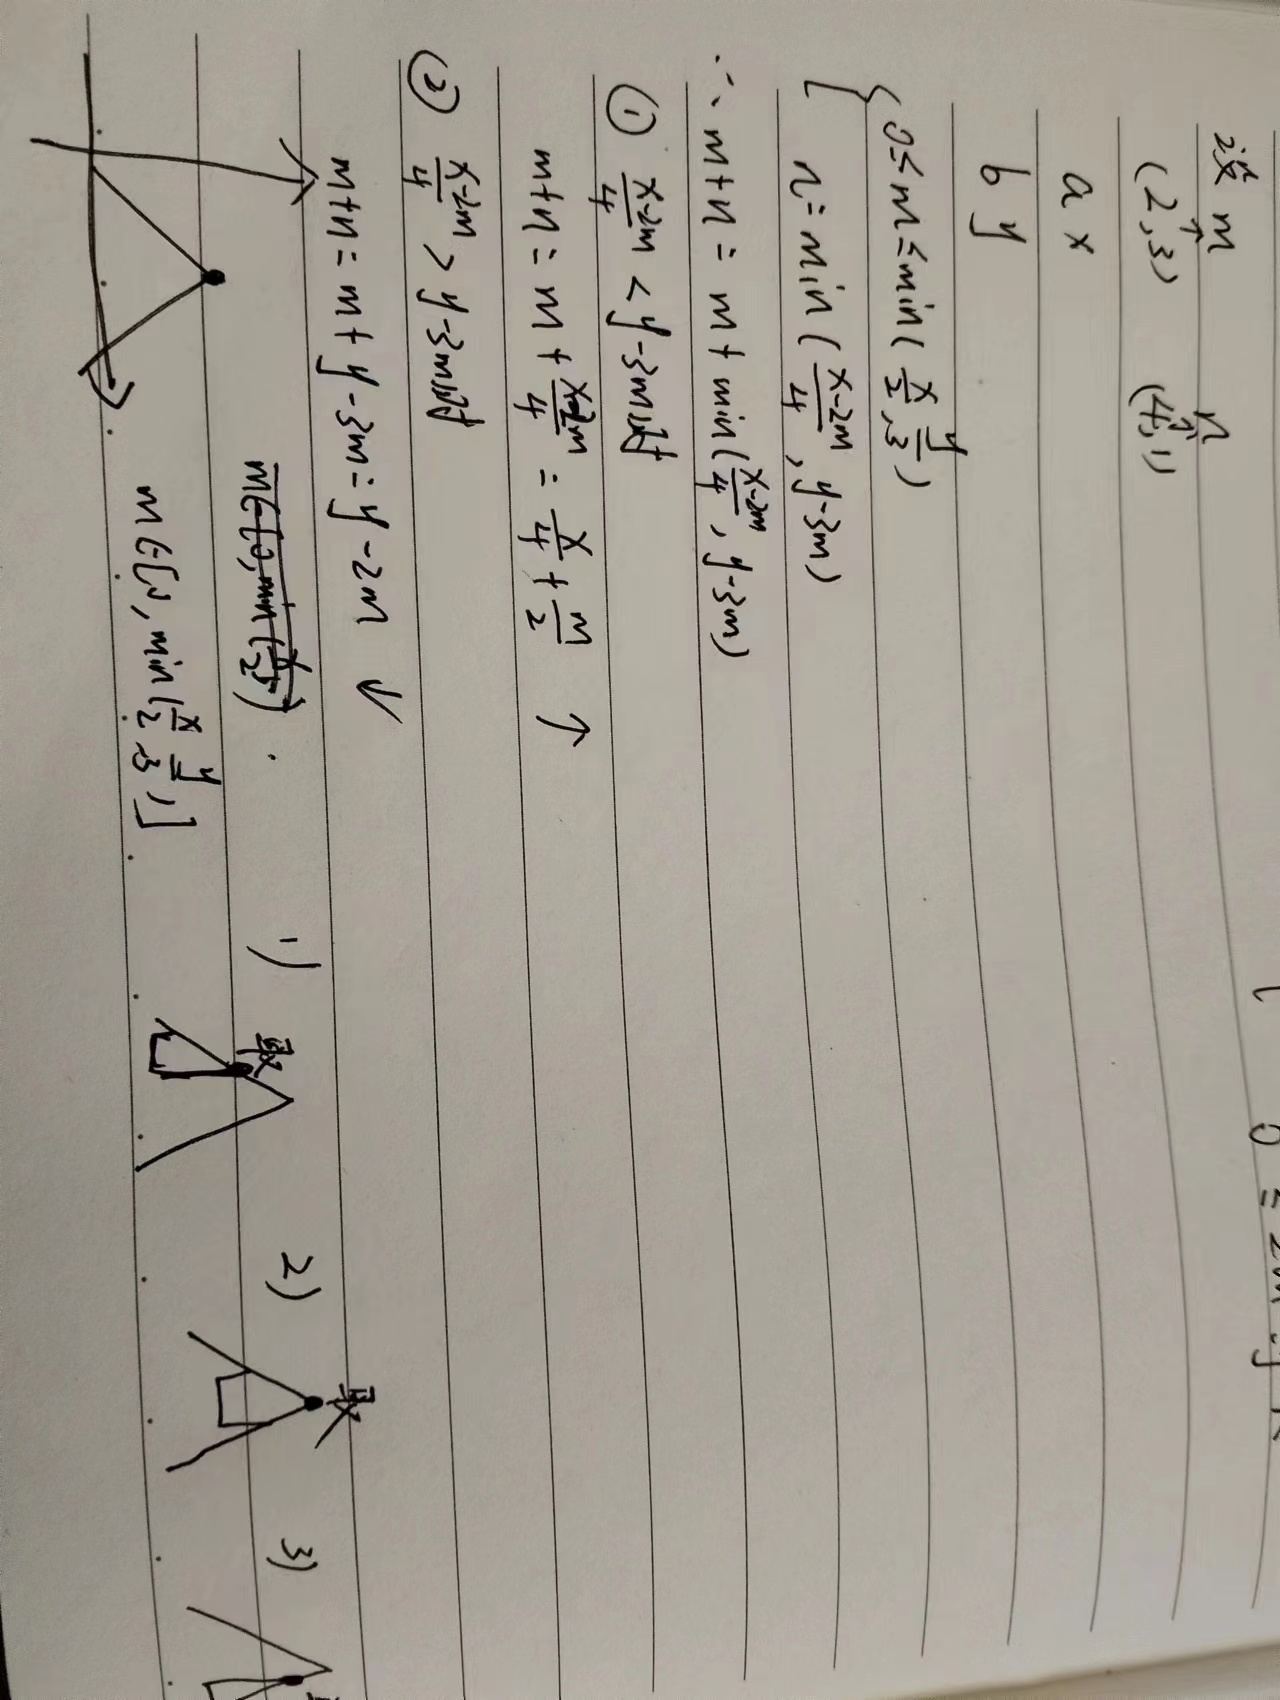 设 m n
(2,3) (4,1)
a x
b y
{ 0≤m≤min(x/2, y/3)
n=min(x-2m/4, y-3m)
∴ m+n = m+min(x-2m/4, y-3m)
① x-2m/4 < y-3m时
m+n = m+x-2m/4 = x/4 + m/2 ↑
② x-2m/4 > y-3m时
m+n = m+y-3m = y-2m ↓
m∈[0, min(x/2, y/3)]
1) 取
2) 取
3)